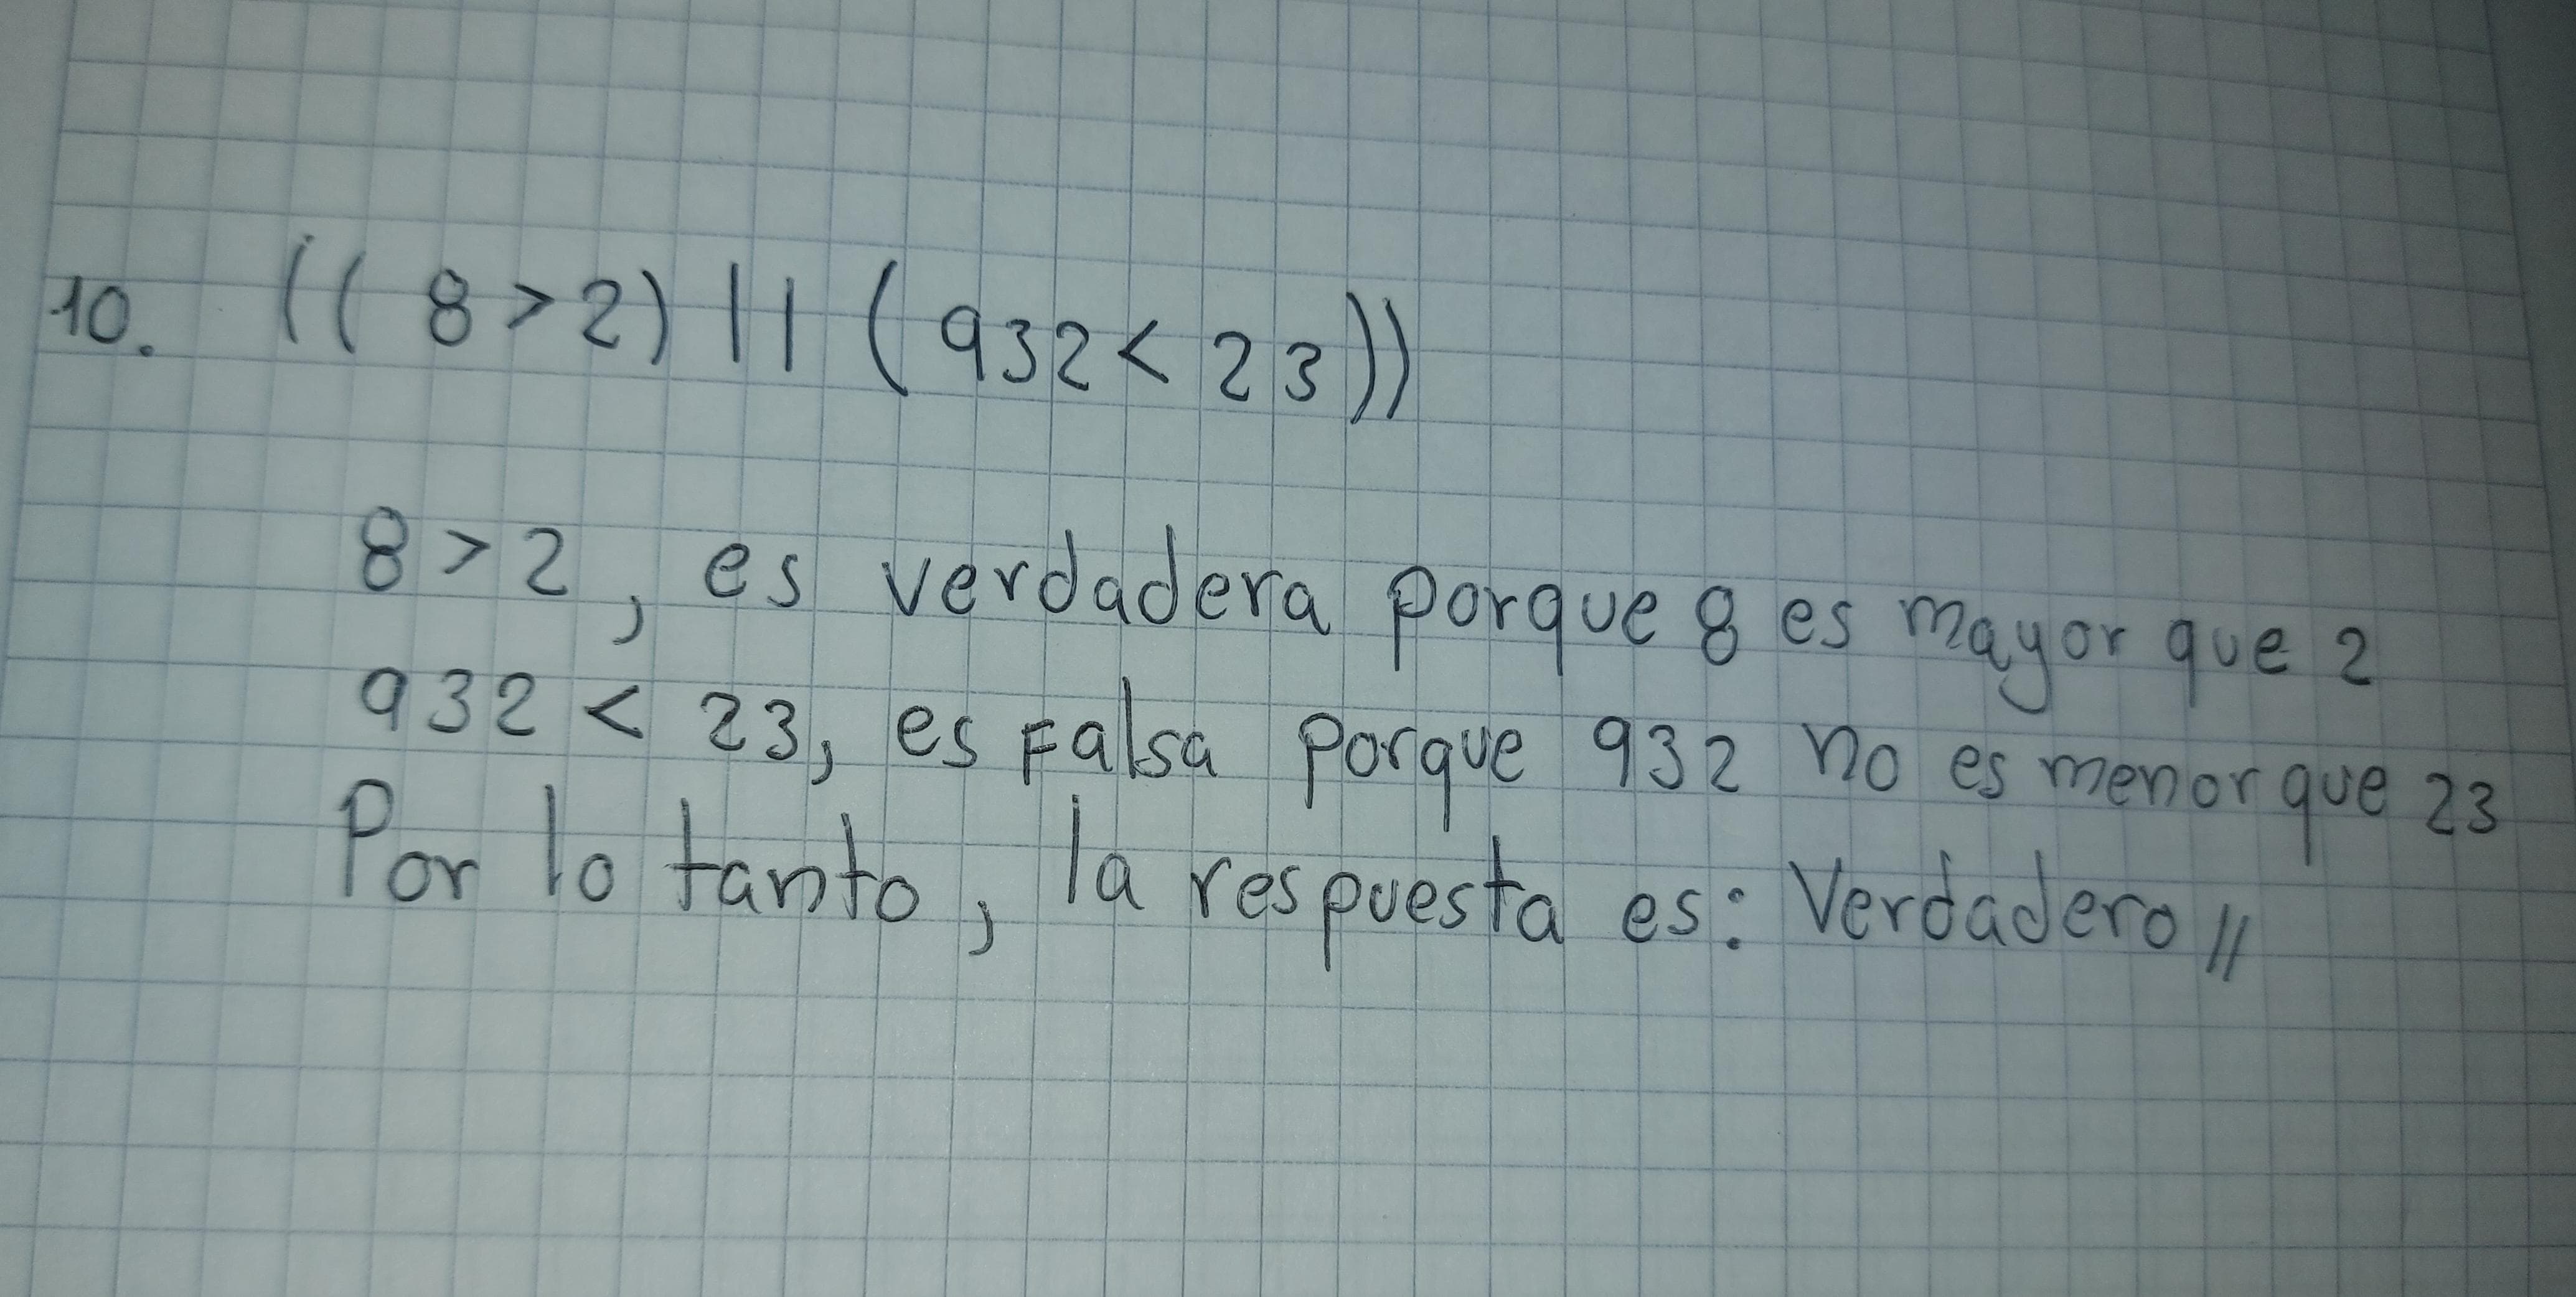 10. ((8>2) || (932<23))
8>2, es verdadera porque 8 es mayor que 2
932 < 23, es Falsa porque 932 no es menor que 23
Por lo tanto, la respuesta es: Verdadero //